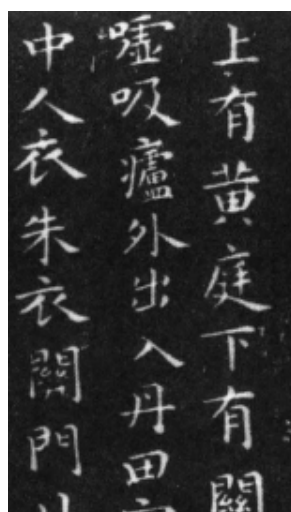 上有黄庭下有關
嘘吸廬外出入丹田
中人衣朱衣關門